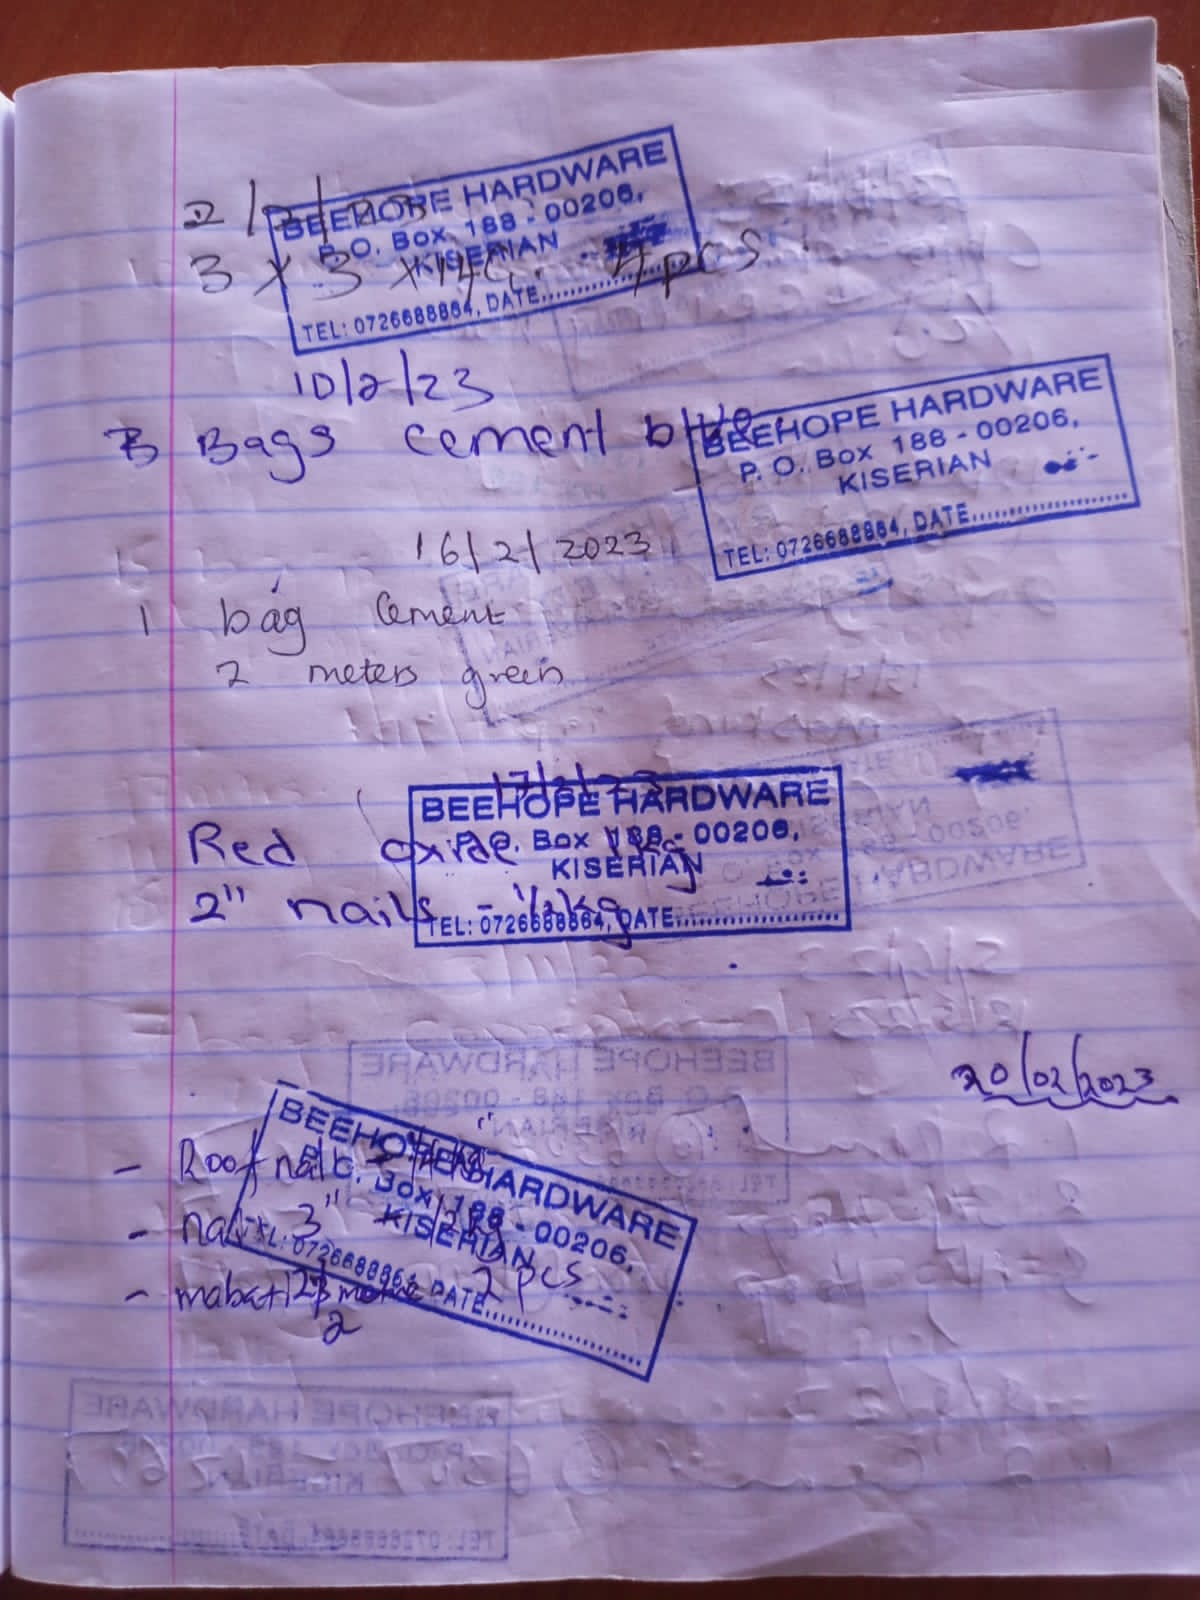 2/2/23
BEEHOPE HARDWARE
P. O. Box 188 - 00206,
KISERIAN
3 x 3 x 14 4 pcs
TEL: 0726688864, DATE
10/2/23
3 Bags cement blue
BEEHOPE HARDWARE
P. O. Box 188 - 00206,
KISERIAN
TEL: 0726688864, DATE
16/2/2023
1 bag Cement
2 meters green
17/2/23
BEEHOPE HARDWARE
Red oxide 1kg
P. O. Box 188 - 00206,
KISERIAN
2" nails - 1/2kg
TEL: 0726688864, DATE
20/02/2023
BEEHOPE HARDWARE
P. O. Box 188 - 00206,
KISERIAN
TEL: 0726688864, DATE
- Roof nails
- nails 3" 1/2kg
- mabati 2 2 pcs